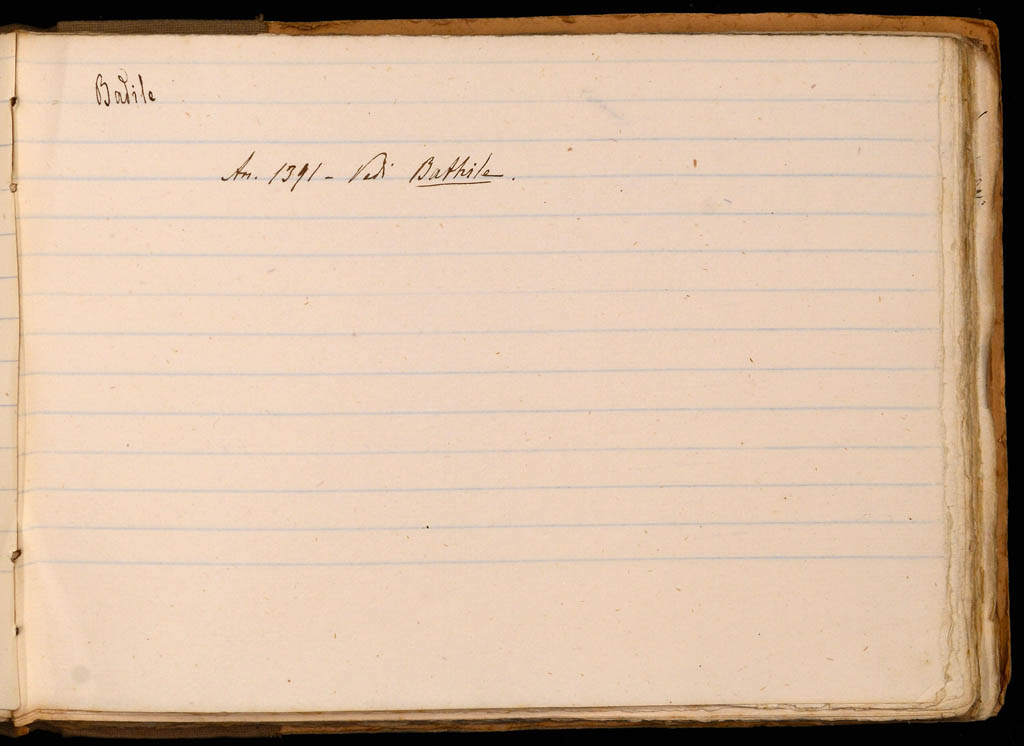 Badile
An. 1391 - Vedi Bathile.